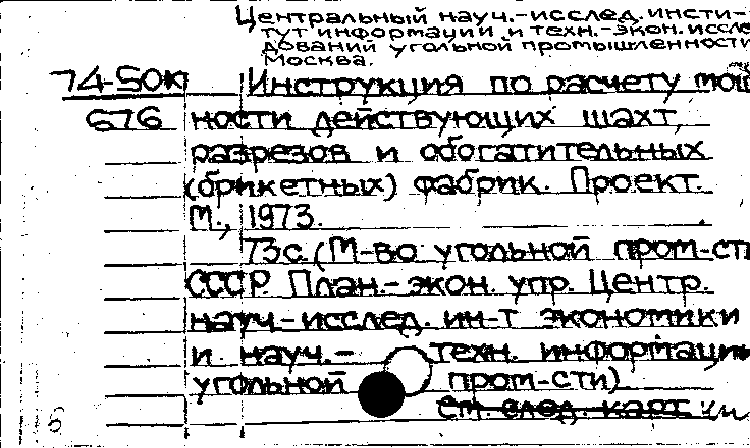 Центральный науч.-исслед. инсти-
тут информации и техн.-экон. иссле
дований угольной промышленности
Москва.
74-50к Инструкция по расчету мощ
676 ности действующих шахт,
разрезов и обогатительных
(брикетных) фабрик. Проект.
М., 1973.
73с. (М-во угольной пром-сти
СССР. План.-экон. упр. Центр.
науч.-исслед. ин-т экономики
и науч.- техн. информации
угольной пром-сти)
см. след. карт